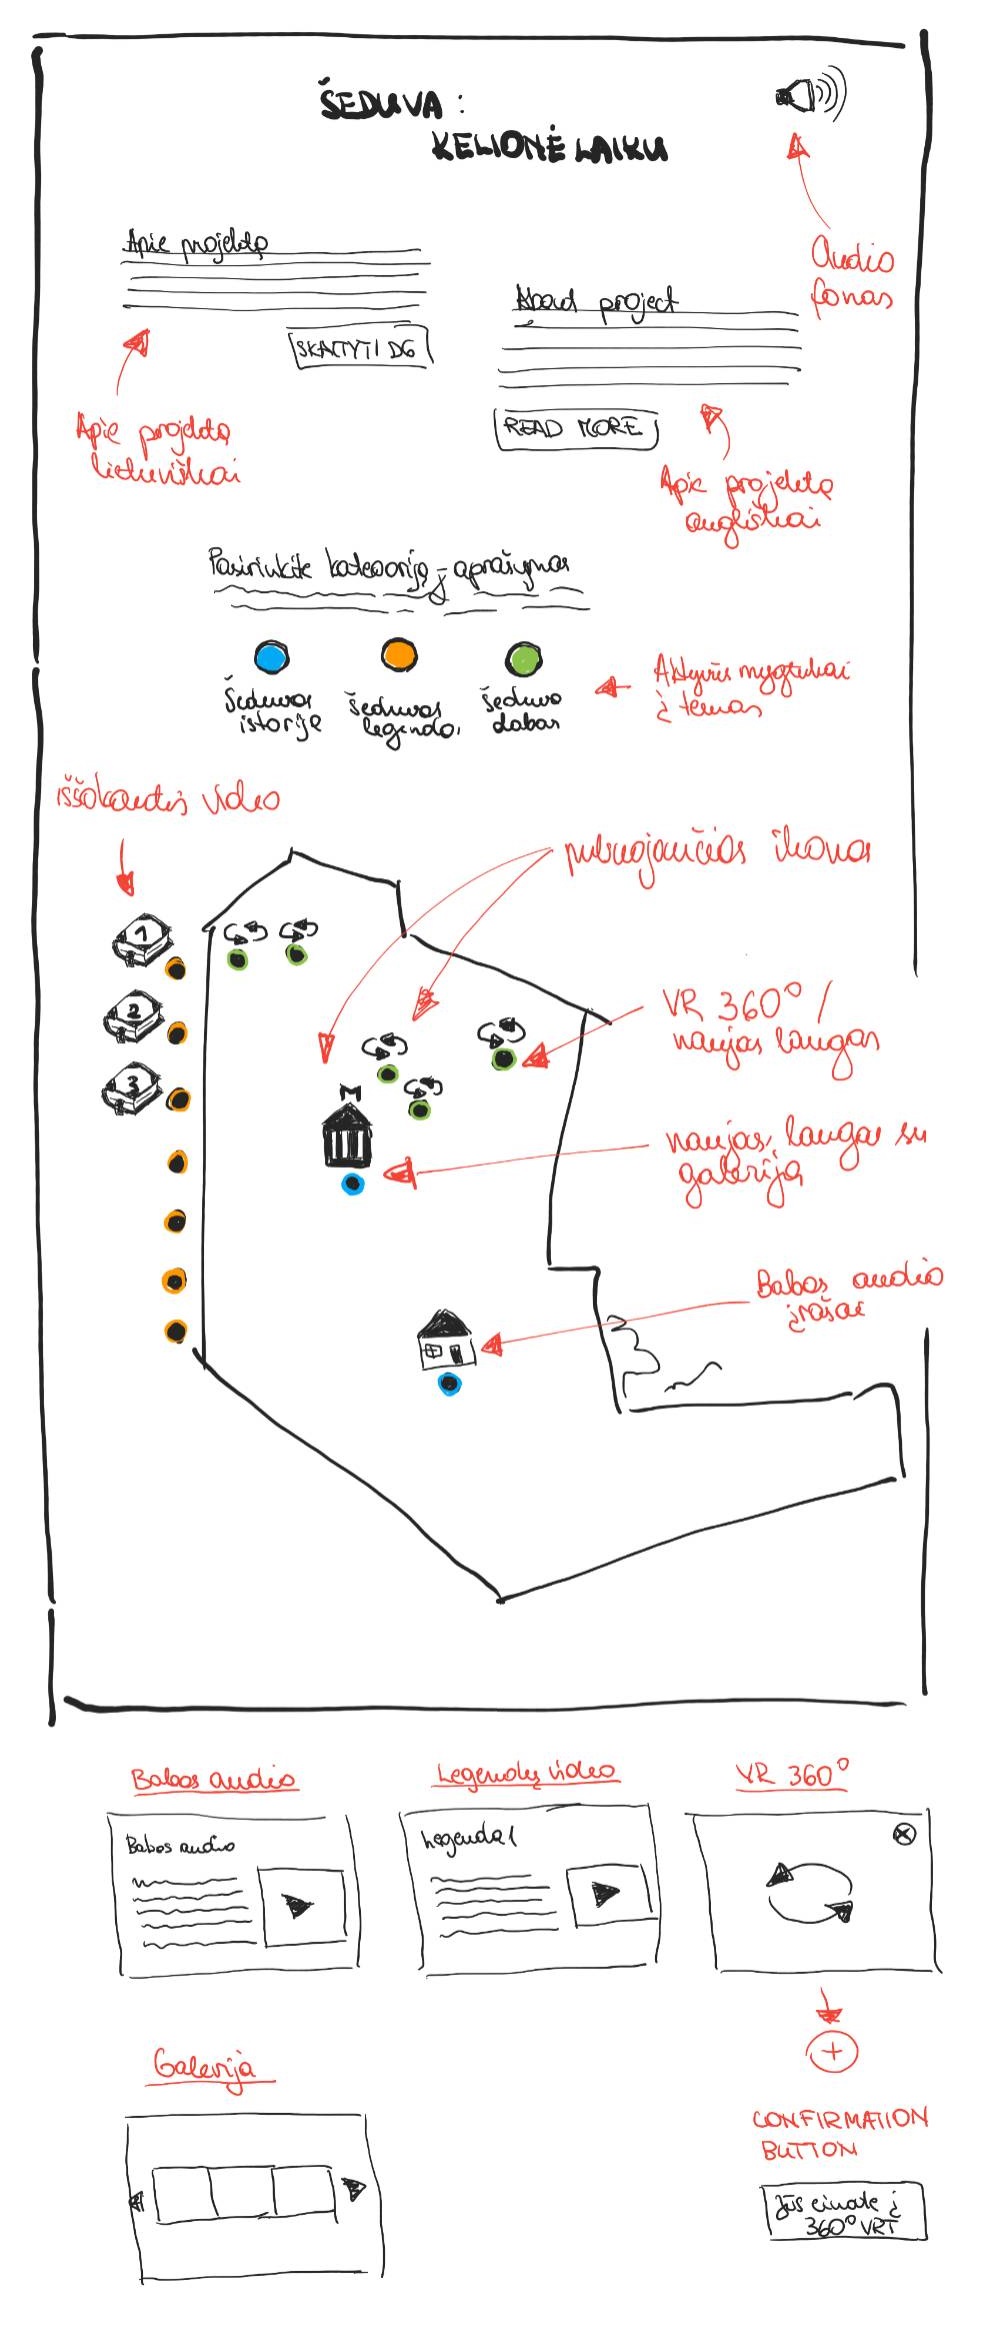 ŠEDUVA :
KELIONĖ LAIKU
Audio
fonas
Apie projektą
SKAITYTI DG
About project
READ MORE
Apie projektą
lietuviškai
Apie projektą
angliškai
Pasirinkite kategoriją - aprašymas
Šeduvos
istorija
Šeduvos
legendos
Šeduva
dabar
Aktyvūs mygtukai
į temas
iššokantis video
pulsuojančios ikonos
1
2
3
M
VR 360° /
naujas langas
naujas langas su
galerija
Babos audio
įrašai
Babos audio
Legendų video
VR 360°
Babos audio
Legenda 1
Galerija
CONFIRMATION
BUTTON
Jūs einate į
360° VRT